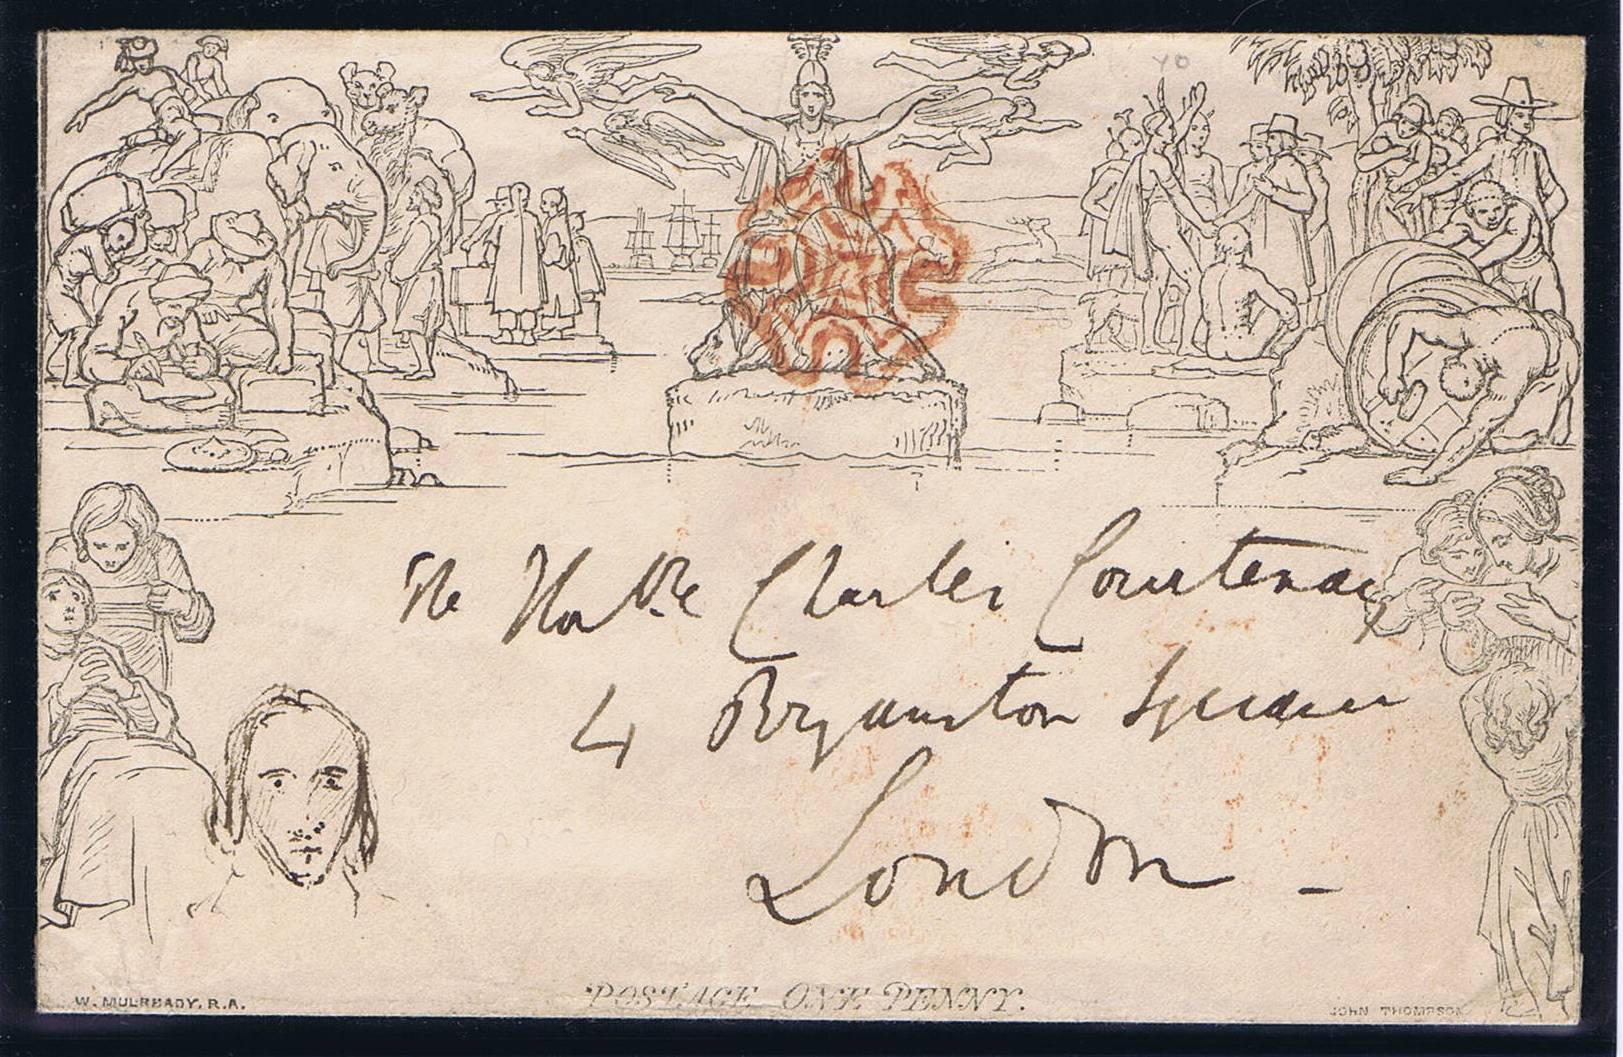 The Honble Charles Courtenay
4 Bryanston Square
London -
POSTAGE ONE PENNY.
W. MULREADY, R.A.
JOHN THOMPSON